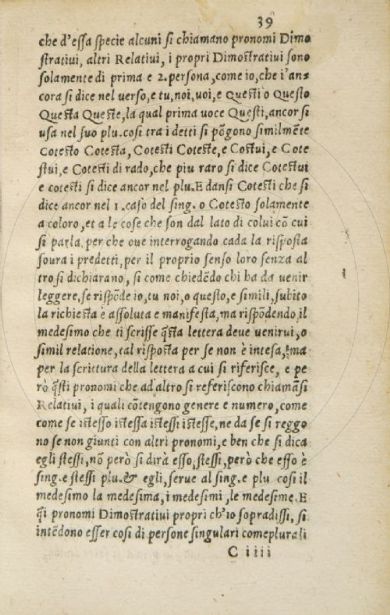 39
che d'essa specie alcuni si chiamano pronomi Dimo
strativi, altri Relativi, i propri Dimostrativi sono
solamente di prima e 2. persona, come io, che i'an
cora si dice nel verso, e tu, noi, voi, e Questi o Questo
Questa Queste, la qual prima voce Questi, ancor si
usa nel suo plu. cosi tra i detti si põgono similmẽte
Cotesto Cotesta, Cotesti Coteste, e Costui, e Cote
stui, e Cotesti di rado, che piu raro si dice Cotestui
e cotesti si dice ancor nel plu. E dansi Cotesti che si
dice ancor nel 1. caso del sing. o Cotesto solamente
a coloro, et a le cose che son dal lato di colui cõ cui
si parla, per che ove interrogando cada la risposta
soura i predetti, per il proprio senso loro senza al
tro si dichiarano, si come chiedẽdo chi ha da venir
leggere, se rispõde io, tu noi, o questo, e simili, subito
la richiesta è assoluta e manifesta, ma rispõdendo, il
medesimo che ti scrisse q̃sta lettera deve venirui, o
simil relatione, tal risposta per se non è intesa, ma
per la scrittura della lettera a cui si riferisce, e pe
rò q̃sti pronomi che ad altro si referiscono chiamãsi
Relativi, i quali cõtengono genere e numero, come
come se istesso istessa istessi istesse, ne da se si reggo
no se non giunti con altri pronomi, e ben che si dica
egli stessi, nõ però si dirà esso, stessi, però che esso è
sing. e stessi plu. & egli, serue al sing. e plu cosi il
medesimo la medesima, i medesimi, le medesime. E
q̃i pronomi Dimostrativi propri ch'io sopradissi, si
intẽdono esser cosi di persone singulari come plurali
C iiii